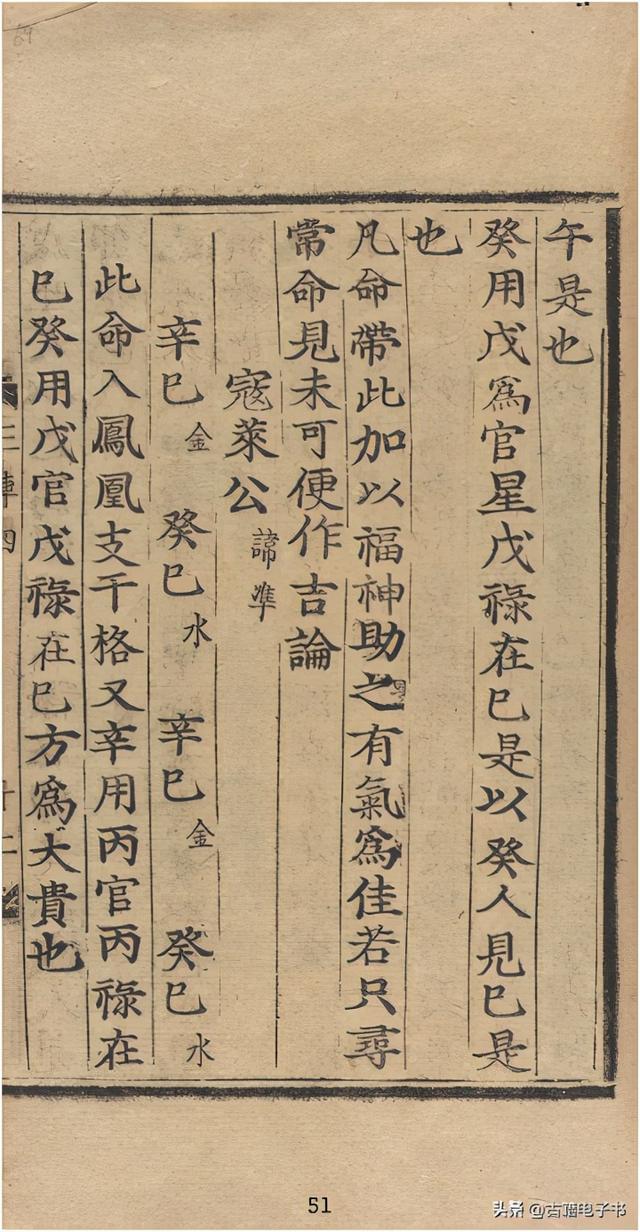 午是也
癸用戊爲官星戊祿在巳是以癸人見巳是
也
凡命帶此加以福神助之有氣爲佳若只尋
常命見未可便作吉論
寇萊公諱準
辛巳金 癸巳水 辛巳金 癸巳水
此命入鳳凰支干格又辛用丙官丙祿在
巳癸用戊官戊祿在巳方爲大貴也
51
头条@古籍电子书